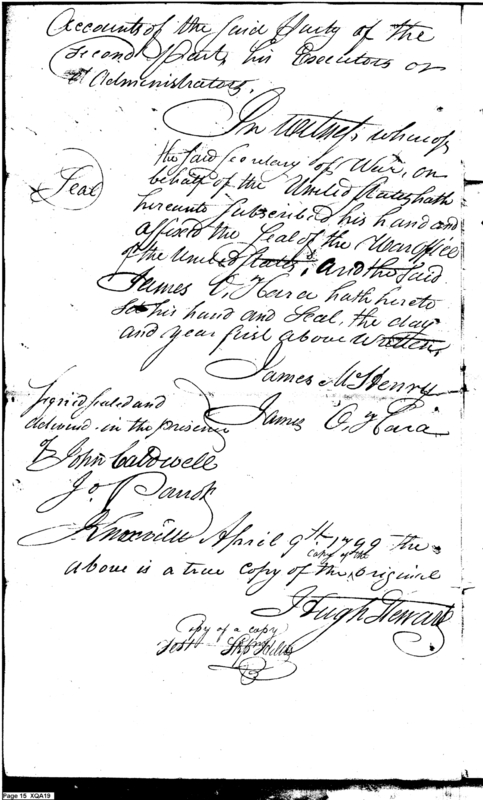 Accounts of the said Party of the
second Part, his Executors or
Administrators.
In witness whereof
the said Secretary of War, on
behalf of the United States hath
hereunto subscribed his hand and
Seal
affixed the Seal of the War Office
of the United States, and the said
James O'Hara hath hereto
set his hand and Seal, the day
and year first above written.
James McHenry
Signed sealed and
James O'Hara
delivered in the presence
of John Caldwell
Jo
Knoxville April 9th 1799 the
copy of the
above is a true copy of the original
Hugh Stewart
Copy of a copy
Test
Page 15 XQA19